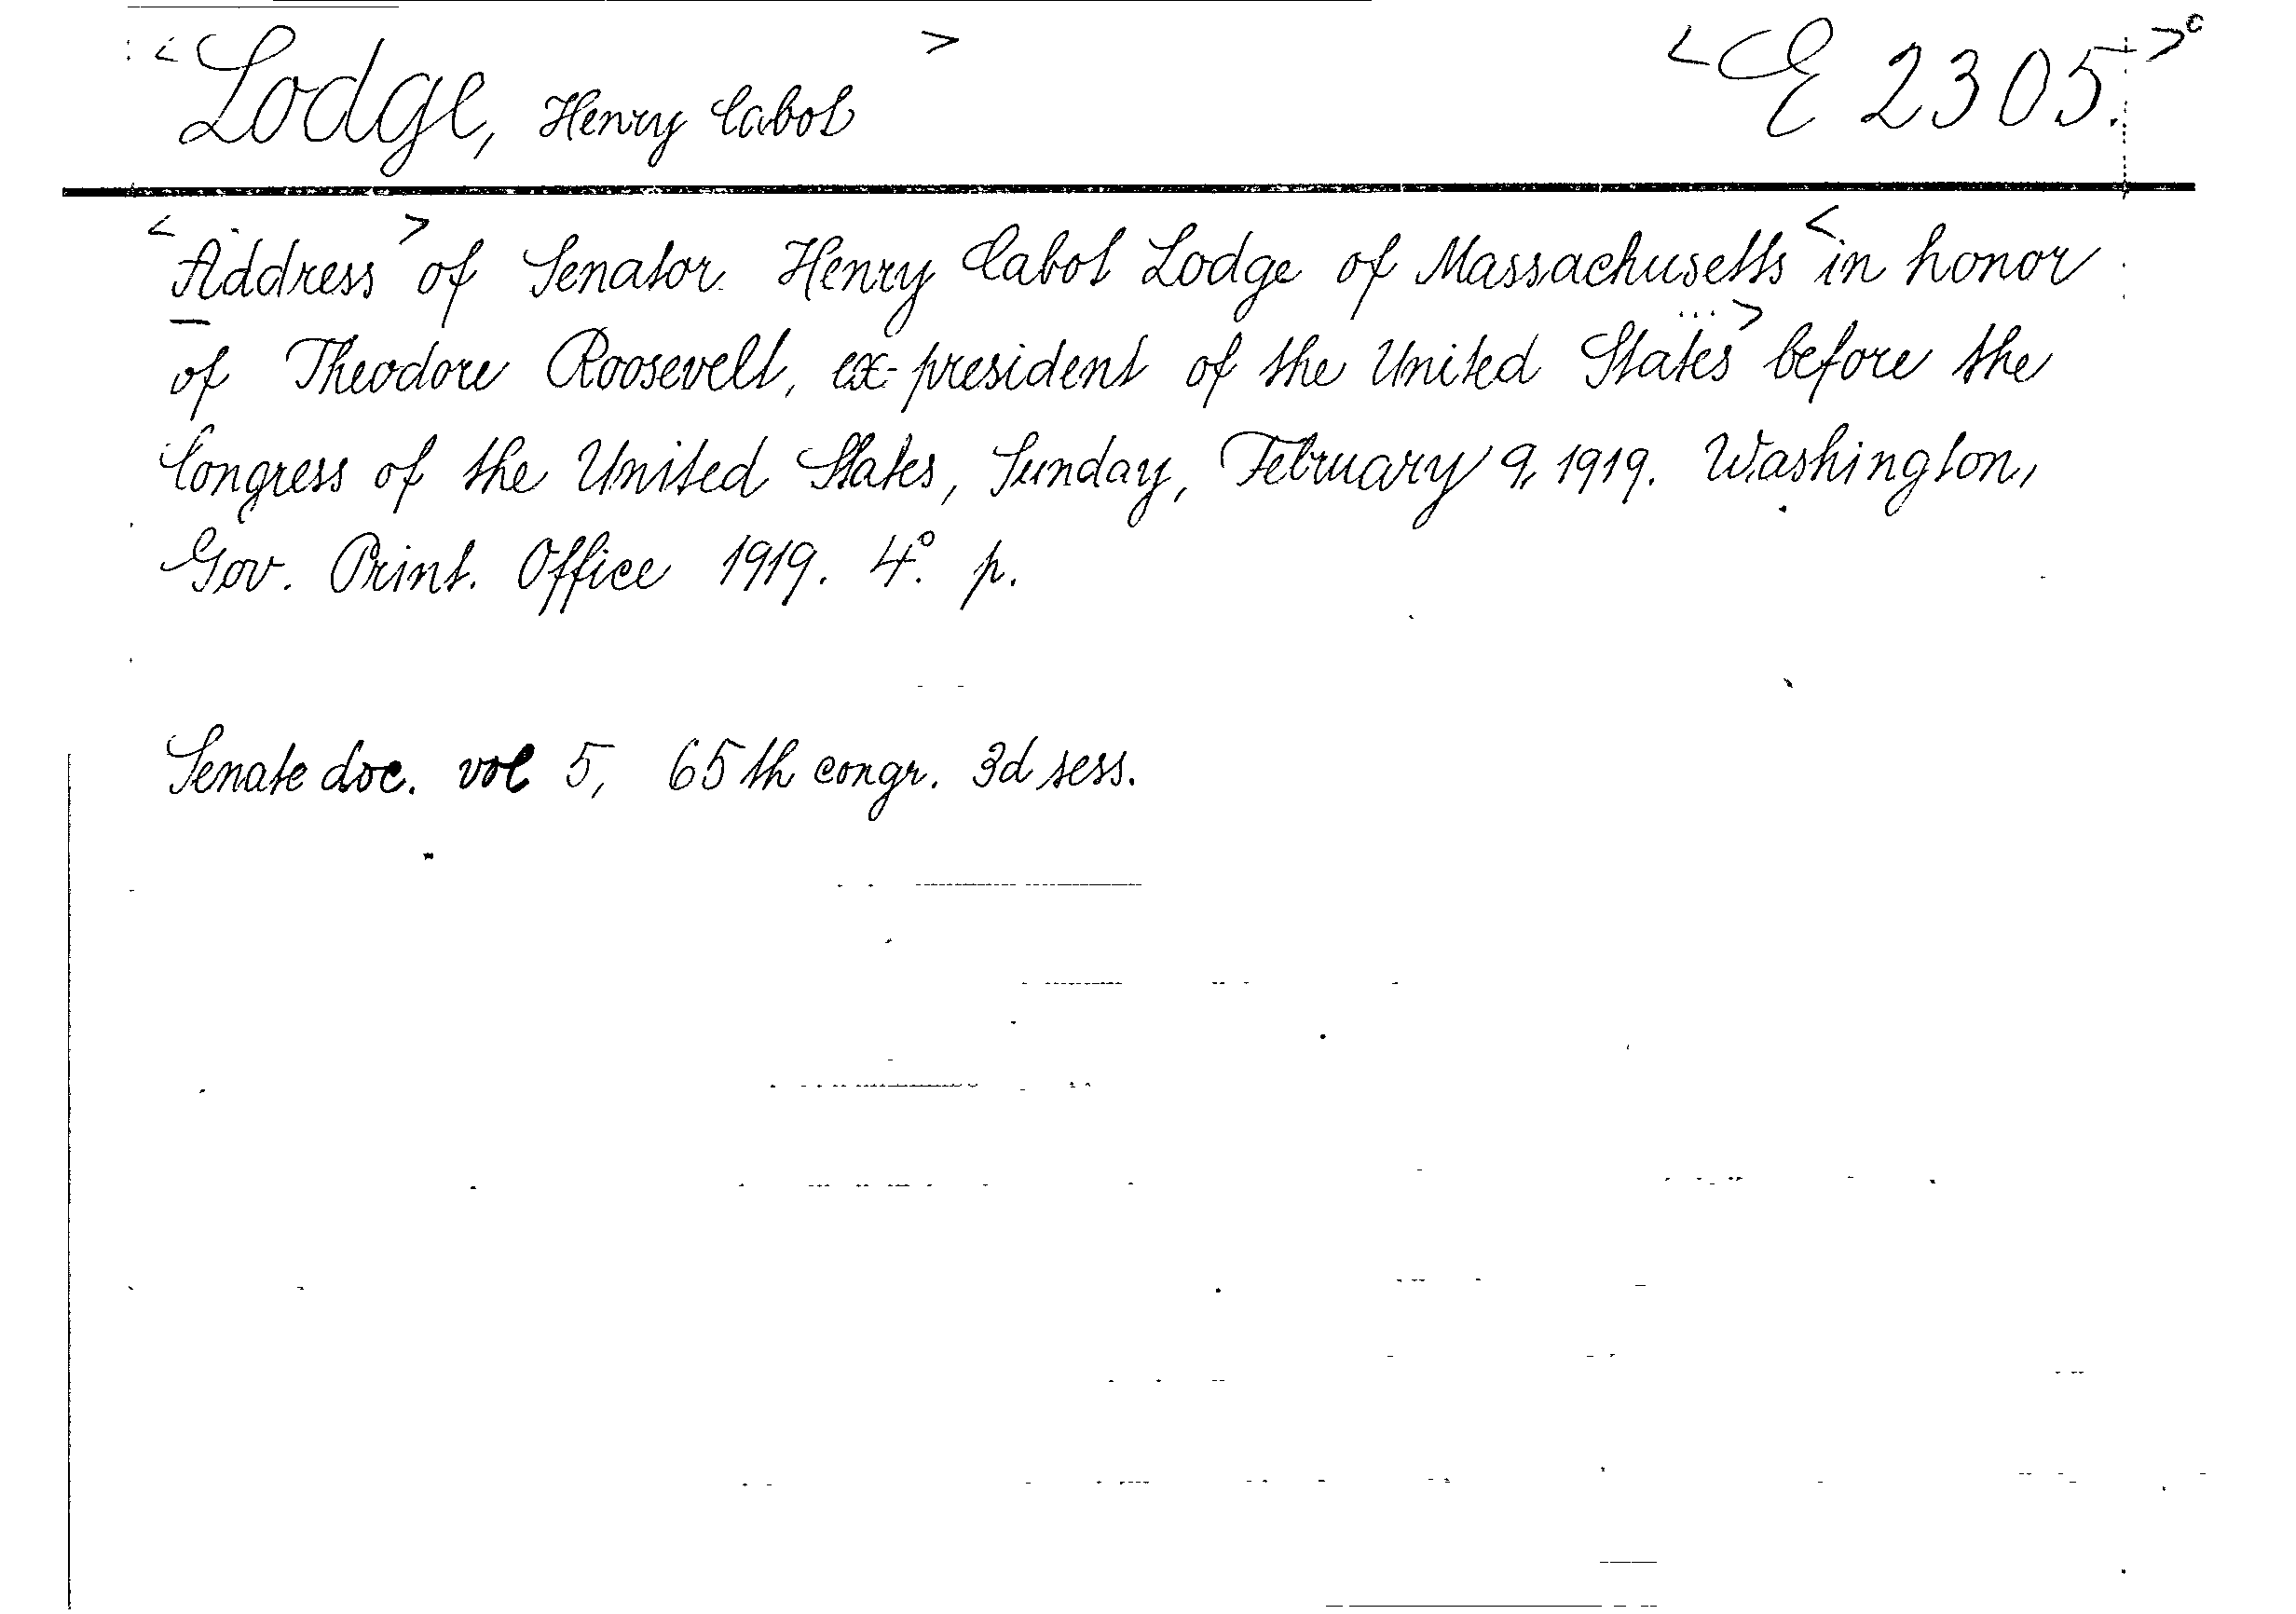 <Lodge, Henry Cabot> <E 2305.>c
<Address> of Senator Henry Cabot Lodge of Massachusetts <in honor
of Theodore Roosevelt, ex-president of the United States ...> before the
Congress of the United States, Sunday, February 9, 1919. Washington,
Gov. Print. Office 1919. 4°. p.
Senate doc. vol 5, 65th congr. 3d sess.